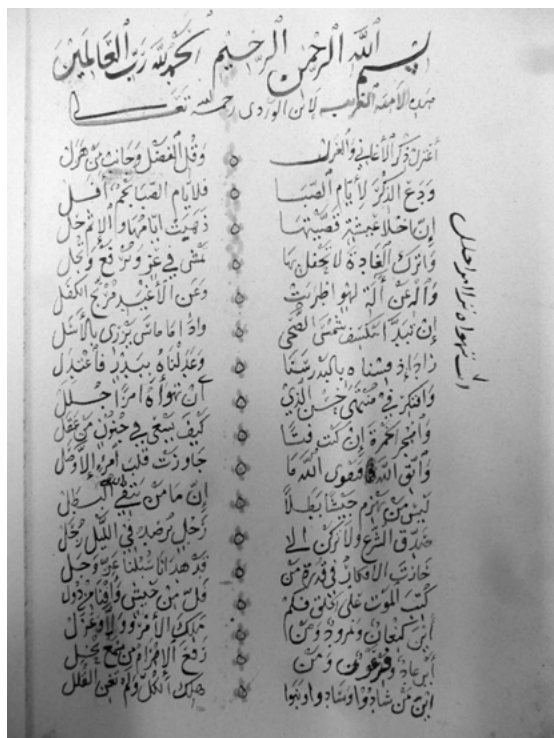 بسم الله الرحمن الرحيم الحمد لله رب العالمين
هذه لابن الوردى رحمه الله تعالى
اعتزل ذكر الأغاني والغزل وقل الفصل وجانب من هزل
ودع الذكر لأيام الصبا فلأيام الصبا نجم أفل
إن أحلا عيشة قضيتها ذهبت أيامها والإثم حل
واترك الغادة لا تحفل بها تمسي في عز وترفع وتجل
واله عن آلة لهو أطربت وعن الأغيد مرتج الكفل
إن تبدا تنكسف شمس الضحى وإذا ما ماس يزري بالأسل
زاد إذ قسناه بالبدر سنا وعدلناه ببدر فاعتدل
وافتكر في منتهى حسن الذي أنت تهواه أمرا جلل
واهجر الخمرة إن كنت فتا كيف يسعى في جنون من عقل
واتق الله فتقوى الله ما جاوزت قلب امرء إلا وصل
ليس من يهزم جيشا بطلا إن ما من يتقي الله البطل
صدق الشرع ولا تركن إلى رجل يرصد في الليل زحل
حارت الأفكار في قدرة من قد هدانا سبلنا عز وجل
كتب الموت على الخلق فكم فل من جيش وأفنا من دول
أين كنعان ونمرود ومن ملك الأمر وولا وعزل
أين عاد وفرعون ومن رفع الأهرام من يسمع يخل
أين من شادوا وسادوا وبنوا هلك الكل ولم تغن القلل
أنت تهواه